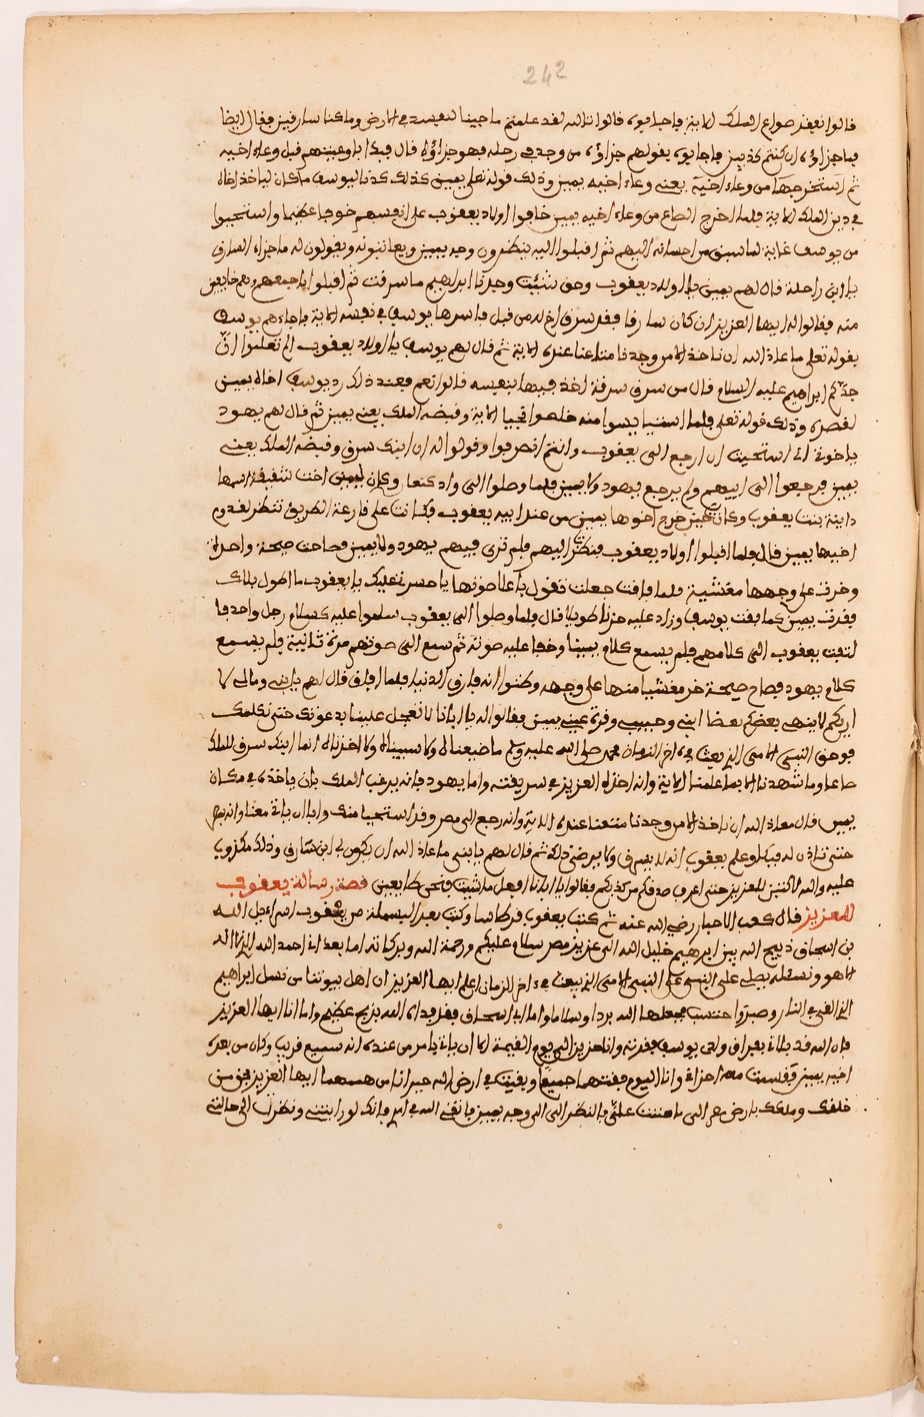 242
قالوا نفقد صواع الملك الاية فاجابوه قالوا تالله لقد علمتم ما جينا لنفسد في الارض وما كنا سارفين فقال ايضا
فما جزاؤه ان كنتم كذبين فاجابوه بقولهم جزاؤه من وجد في رحله فهو جزاؤه قال فبدا باوعيتهم قبل وعاء اخيه
ثم استخرجها من وعاء اخيه يعني وعاء اخيه يمين وذلك قوله تعلى يعني كذلك كدنا ليوسف ما كان لياخذ اخاه
في دين الملك الاية فلما اخرج الصاع من وعاء اخيه يمين خافوا اولاد يعقوب على انفسهم خوفا عظيما واستحيوا
من يوسف غاية لما سبق من احسانه اليهم ثم اقبلوا اليه ينظرون وجه يمين ويعاتبونه ويقولون له ما جزاء السارق
يا ابن راحلة قال لهم يمين يا اولاد يعقوب وحق شيبت وجدنا ابراهيم ما سرقت ثم اقبلوا باجمعهم وهم خايفين
منه فقالوا له ايها العزيز ان كان سارقا فقد سرق اخ له من قبل فاسرها يوسف في نفسه الاية فاجاءهم يوسف
بقوله تعلى معاذ الله ان ناخذ الا من وجدنا متاعنا عنده الاية ثم قال لهم يوسف يا اولاد يعقوب الم تعلموا ان
جدكم ابراهيم عليه السلام قال من سرق سرقة اخذ فيها بنفسه قالوا نعم فعند ذلك رد يوسف اخاه يمين
لقصره وذلك قوله تعلى فلما استيئسوا منه خلصوا نجيا الاية وقبضه الملك يعني يمين ثم قال لهم يهود
يا خوتي اني استحيت ان ارجع الى يعقوب وانتم انصرفوا وقولوا له ان ابنك سرق وقبضه الملك يعني
يمين فرجعوا الى ابيهم ولم يرجع يهود ولا يمين فلما وصلوا الى واد كنعان وكان ليمين اخت شقيقة اسمها
دانية بنت يعقوب وكان حين خرج اخوها يمين من عند ابيه يعقوب وكانت على قارعة الطريق تنتظر لقدوم
اخيها يمين قال فلما اقبلوا اولاد يعقوب فنظرت اليهم فلم ترى فيهم يهود ولا يمين فصاحت صيحة واحدة
وخرت على وجهها مغشية فلما افاقت جعلت تقول باعلا صوتها يا حسرتي عليك يا يعقوب ما اطول بلاك
فقدت يمين كما فقدت يوسف وزاد عليه حزنا طويلا قال فلما وصلوا الى يعقوب سلموا عليه كسلام رجل واحد فا
لتفت يعقوب الى كلامهم فلم يسمع كلام يمينا وخفا عليه صوته ثم سمع الى صوتهم مرة ثانية فلم يسمع
كلام يهود فصاح صيحة خر مغشيا منها على وجهه وظنوا انه فارق الدنيا فلما افاق قال لهم يا بني ومالي لا
اريكم لاينهى بعضكم بعضا ابني وحبيبي وقرة عيني يمين فقالوا له يا ابانا لا تعجل علينا بدعوتك حتى نكلمك
فوحق النبي الامي الذي يبعث في ءاخر الزمان محمد صلى الله عليه وسلم ما ضيعناه ولا سبيناه ولا اخزناه انما ابنك سرق للملك
صاعا وما شهدنا الا بما علمنا الاية وانه اخذه العزيز في سريقته واما يهود فانه يرغب الملك بان ياخذه في مكان
يمين قال معاذ الله ان ناخذ الا من وجدنا متعنا عنده الاية وانه رجع الى مصر وقد استحيا منك وابا ان ياتي معنا وانه
حتى تاذن له فبكى وعلم يعقوب انه لا يسرق ولا يرضى ذلك ثم قال لهم يا بني معاذ الله ان يكون لي ابن سارق وذلك مكذوب
عليه والله لاكتبن للعزيز حتى اعرف صدقكم من كذبكم فقالوا يا ابانا افعل ما شيت فنحن طايعين قصة رسالة يعقوب
للعزيز قال كعب الاحبار رضي الله عنه ثم كتب يعقوب قرطاسا وكتب بعد البسملة من يعقوب اسراءيل الله
بن اسحاق ذبيح الله بن ابرهيم خليل الله الى عزيز مصر سلام عليكم ورحمة الله وبركاته اما بعد اني احمد الله الذي لا اله
الا هو ونسئله يصلي على النبي الامي الذي يبعث في ءاخر الزمان اعلم ايها العزيز ان اهل بيوتنا من نسل ابراهيم
الذي القي في النار وصبر واحتسب فجعلها الله بردا وسلاما واما ابي اسحاق فقد فداه الله بذبح عظيم واما انا ايها العزيز
فان الله قد بلاني بفراق ولدي يوسف فقدته وانا حزين الى يوم القيمة الا ان ياتي بامر من عنده انه سميع قريب وكان من بعده
اخيه يمين فقسمت معه احزاني وانا اليوم فقدتهما جميعا وبقيت في ارض الله حيرانا من همهما ايها العزيز فبحق من
خلقك وملكك بارض مصر الى ما مننت علي بالنظر الى وجه يمين فاتقي الله في امره فانك لو رايتني ونظرت الى حالتي